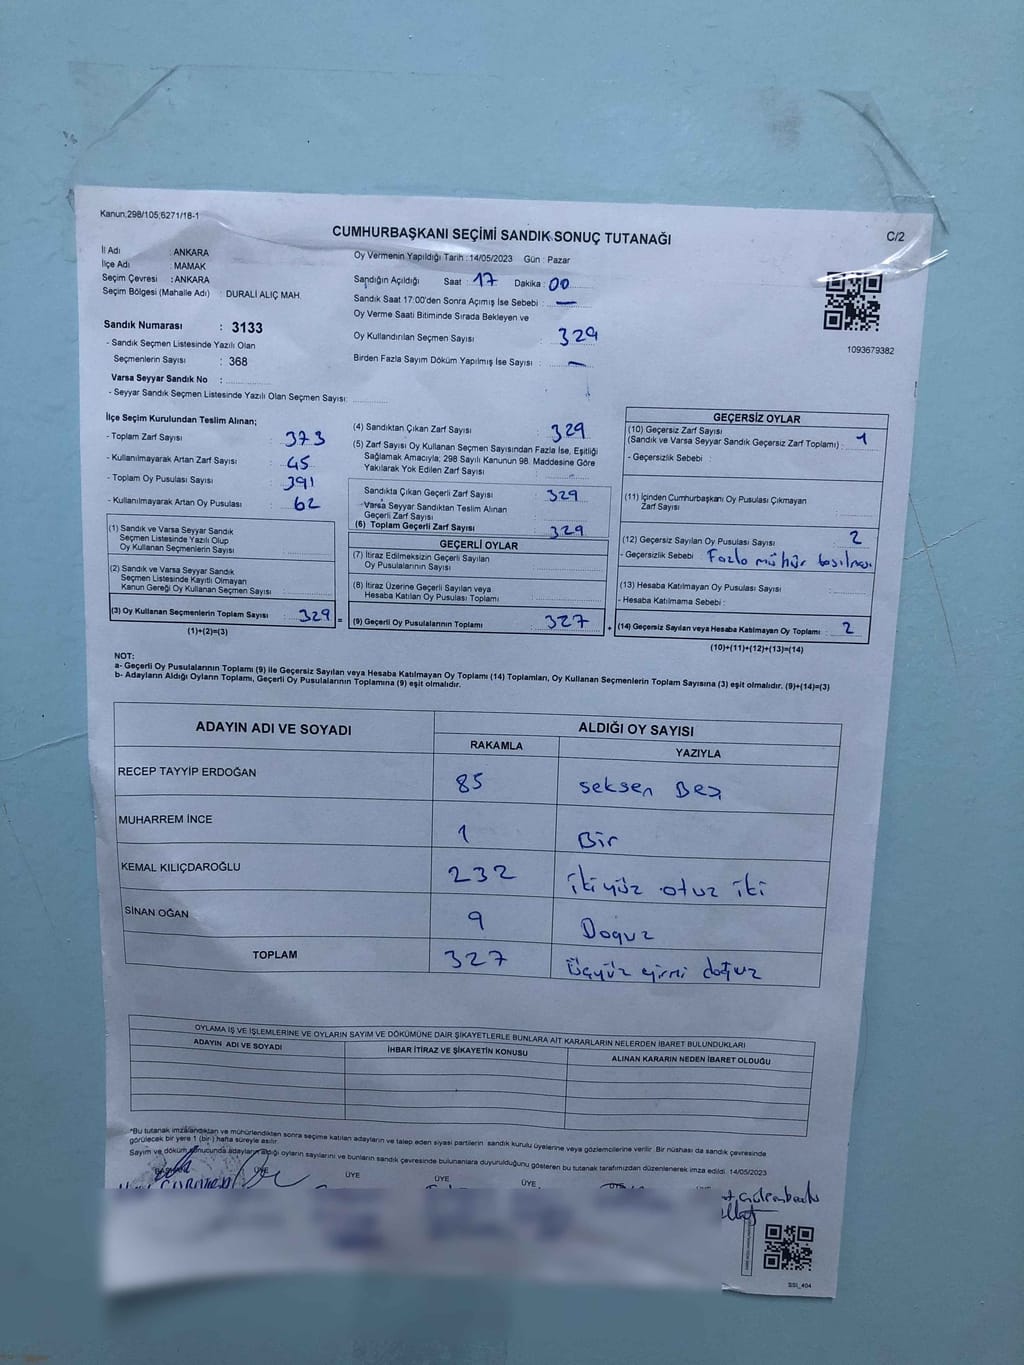 Kanun;298/105;6271/18-1
CUMHURBAŞKANI SEÇİMİ SANDIK SONUÇ TUTANAĞI
C/2
İl Adı : ANKARA
İlçe Adı : MAMAK
Seçim Çevresi : ANKARA
Seçim Bölgesi (Mahalle Adı) : DURALİ ALIÇ MAH.
Oy Vermenin Yapıldığı Tarih : 14/05/2023 Gün : Pazar
Sandığın Açıldığı Saat : 17 Dakika : 00
Sandık Saat 17:00'den Sonra Açımış İse Sebebi : —
Oy Verme Saati Bitiminde Sırada Bekleyen ve
Oy Kullandırılan Seçmen Sayısı 329
Birden Fazla Sayım Döküm Yapılmış İse Sayısı : —
1093679382
Sandık Numarası : 3133
- Sandık Seçmen Listesinde Yazılı Olan
Seçmenlerin Sayısı : 368
Varsa Seyyar Sandık No :
- Seyyar Sandık Seçmen Listesinde Yazılı Olan Seçmen Sayısı:
İlçe Seçim Kurulundan Teslim Alınan;
- Toplam Zarf Sayısı : 373
- Kullanılmayarak Artan Zarf Sayısı : 45
- Toplam Oy Pusulası Sayısı : 391
- Kullanılmayarak Artan Oy Pusulası : 62
(1) Sandık ve Varsa Seyyar Sandık
Seçmen Listesinde Yazılı Olup
Oy Kullanan Seçmenlerin Sayısı :
(2) Sandık ve Varsa Seyyar Sandık
Seçmen Listesinde Kayıtlı Olmayan
Kanun Gereği Oy Kullanan Seçmen Sayısı :
(3) Oy Kullanan Seçmenlerin Toplam Sayısı : 329 =
(1)+(2)=(3)
(4) Sandıktan Çıkan Zarf Sayısı : 329
(5) Zarf Sayısı Oy Kullanan Seçmen Sayısından Fazla İse, Eşitliği
Sağlamak Amacıyla; 298 Sayılı Kanunun 98. Maddesine Göre
Yakılarak Yok Edilen Zarf Sayısı :
Sandıkta Çıkan Geçerli Zarf Sayısı : 329
Varsa Seyyar Sandıktan Teslim Alınan
Geçerli Zarf Sayısı :
(6) Toplam Geçerli Zarf Sayısı : 329
GEÇERLİ OYLAR
(7) İtiraz Edilmeksizin Geçerli Sayılan
Oy Pusulalarının Sayısı :
(8) İtiraz Üzerine Geçerli Sayılan veya
Hesaba Katılan Oy Pusulası Toplamı :
(9) Geçerli Oy Pusulalarının Toplamı : 327 +
GEÇERSİZ OYLAR
(10) Geçersiz Zarf Sayısı
(Sandık ve Varsa Seyyar Sandık Geçersiz Zarf Toplamı) : 1
- Geçersizlik Sebebi :
(11) İçinden Cumhurbaşkanı Oy Pusulası Çıkmayan
Zarf Sayısı :
(12) Geçersiz Sayılan Oy Pusulası Sayısı : 2
- Geçersizlik Sebebi : Fazla mühür basılması
(13) Hesaba Katılmayan Oy Pusulası Sayısı :
- Hesaba Katılmama Sebebi :
(14) Geçersiz Sayılan veya Hesaba Katılmayan Oy Toplamı : 2
(10)+(11)+(12)+(13)=(14)
NOT:
a- Geçerli Oy Pusulalarının Toplamı (9) ile Geçersiz Sayılan veya Hesaba Katılmayan Oy Toplamı (14) Toplamları, Oy Kullanan Seçmenlerin Toplam Sayısına (3) eşit olmalıdır. (9)+(14)=(3)
b- Adayların Aldığı Oyların Toplamı, Geçerli Oy Pusulalarının Toplamına (9) eşit olmalıdır.
ADAYIN ADI VE SOYADI
ALDIĞI OY SAYISI
RAKAMLA YAZIYLA
RECEP TAYYİP ERDOĞAN 85 seksen Beş
MUHARREM İNCE 1 Bir
KEMAL KILIÇDAROĞLU 232 ikiyüz otuz iki
SİNAN OĞAN 9 Doquz
TOPLAM 327 üçyüz yirmi doğuz
OYLAMA İŞ VE İŞLEMLERİNE VE OYLARIN SAYIM VE DÖKÜMÜNE DAİR ŞİKAYETLERLE BUNLARA AİT KARARLARIN NELERDEN İBARET BULUNDUKLARI
ADAYIN ADI VE SOYADI İHBAR İTİRAZ VE ŞİKAYETİN KONUSU ALINAN KARARIN NEDEN İBARET OLDUĞU
*Bu tutanak imzalandıktan ve mühürlendikten sonra seçime katılan adayların ve talep eden siyasi partilerin sandık kurulu üyelerine veya gözlemcilerine verilir. Bir nüshası da sandık çevresinde
görülecek bir yere 1 (bir) hafta süreyle asılır.
Sayım ve döküm sonucunda adayların aldığı oyların sayılarını ve bunların sandık çevresinde bulunanlara duyurulduğunu gösteren bu tutanak tarafımızdan düzenlenerek imza edildi. 14/05/2023
BAŞKAN ÜYE ÜYE ÜYE ÜYE ÜYE
SSİ_404